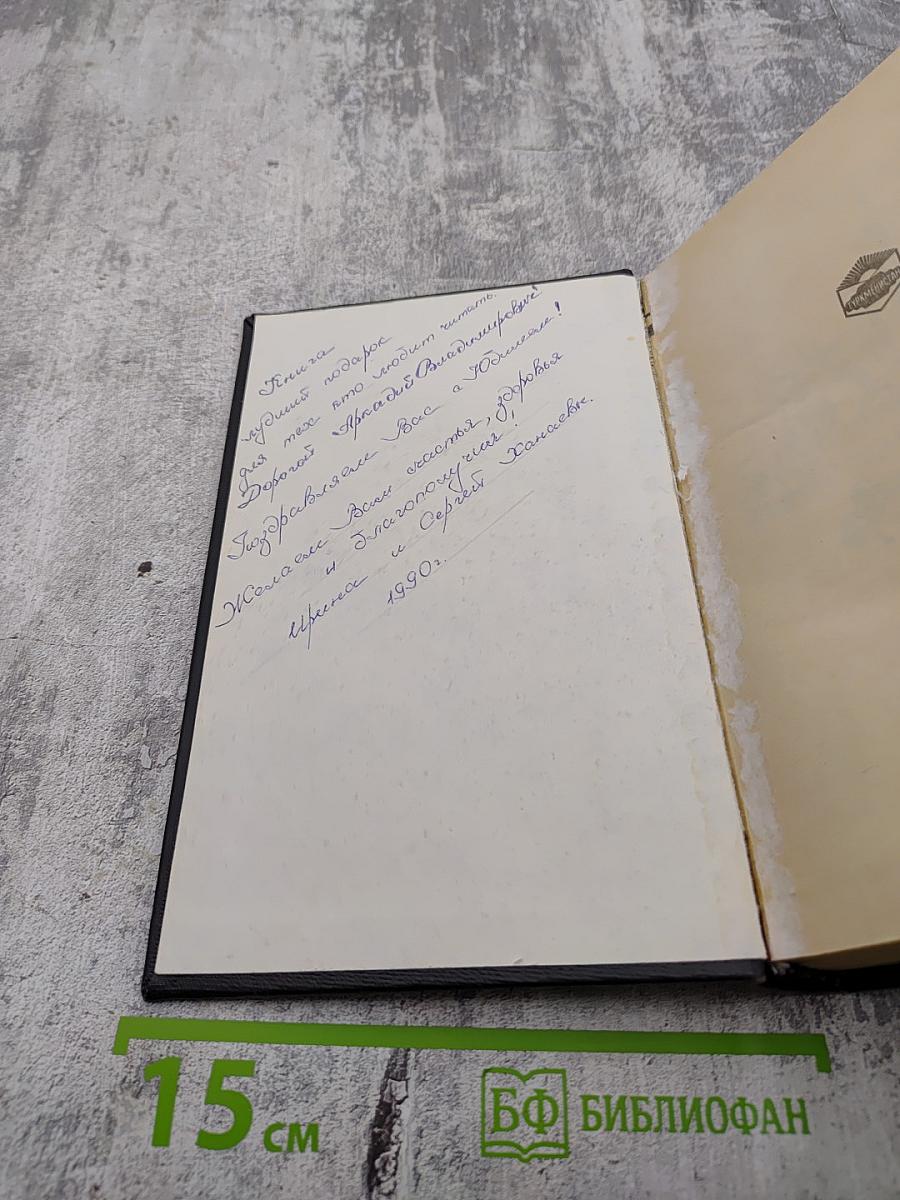 Книга
лучший подарок
для тех кто любит читать.
Дорогой Аркадий Владимирович!
Поздравляем Вас с Юбилеем!
Желаем Вам счастья, здоровья
и благополучия!
Ирина и Сергей Ханаевы.
1990г.
ТУРКМЕНИСТАН
15 см
БФ БИБЛИОФАН